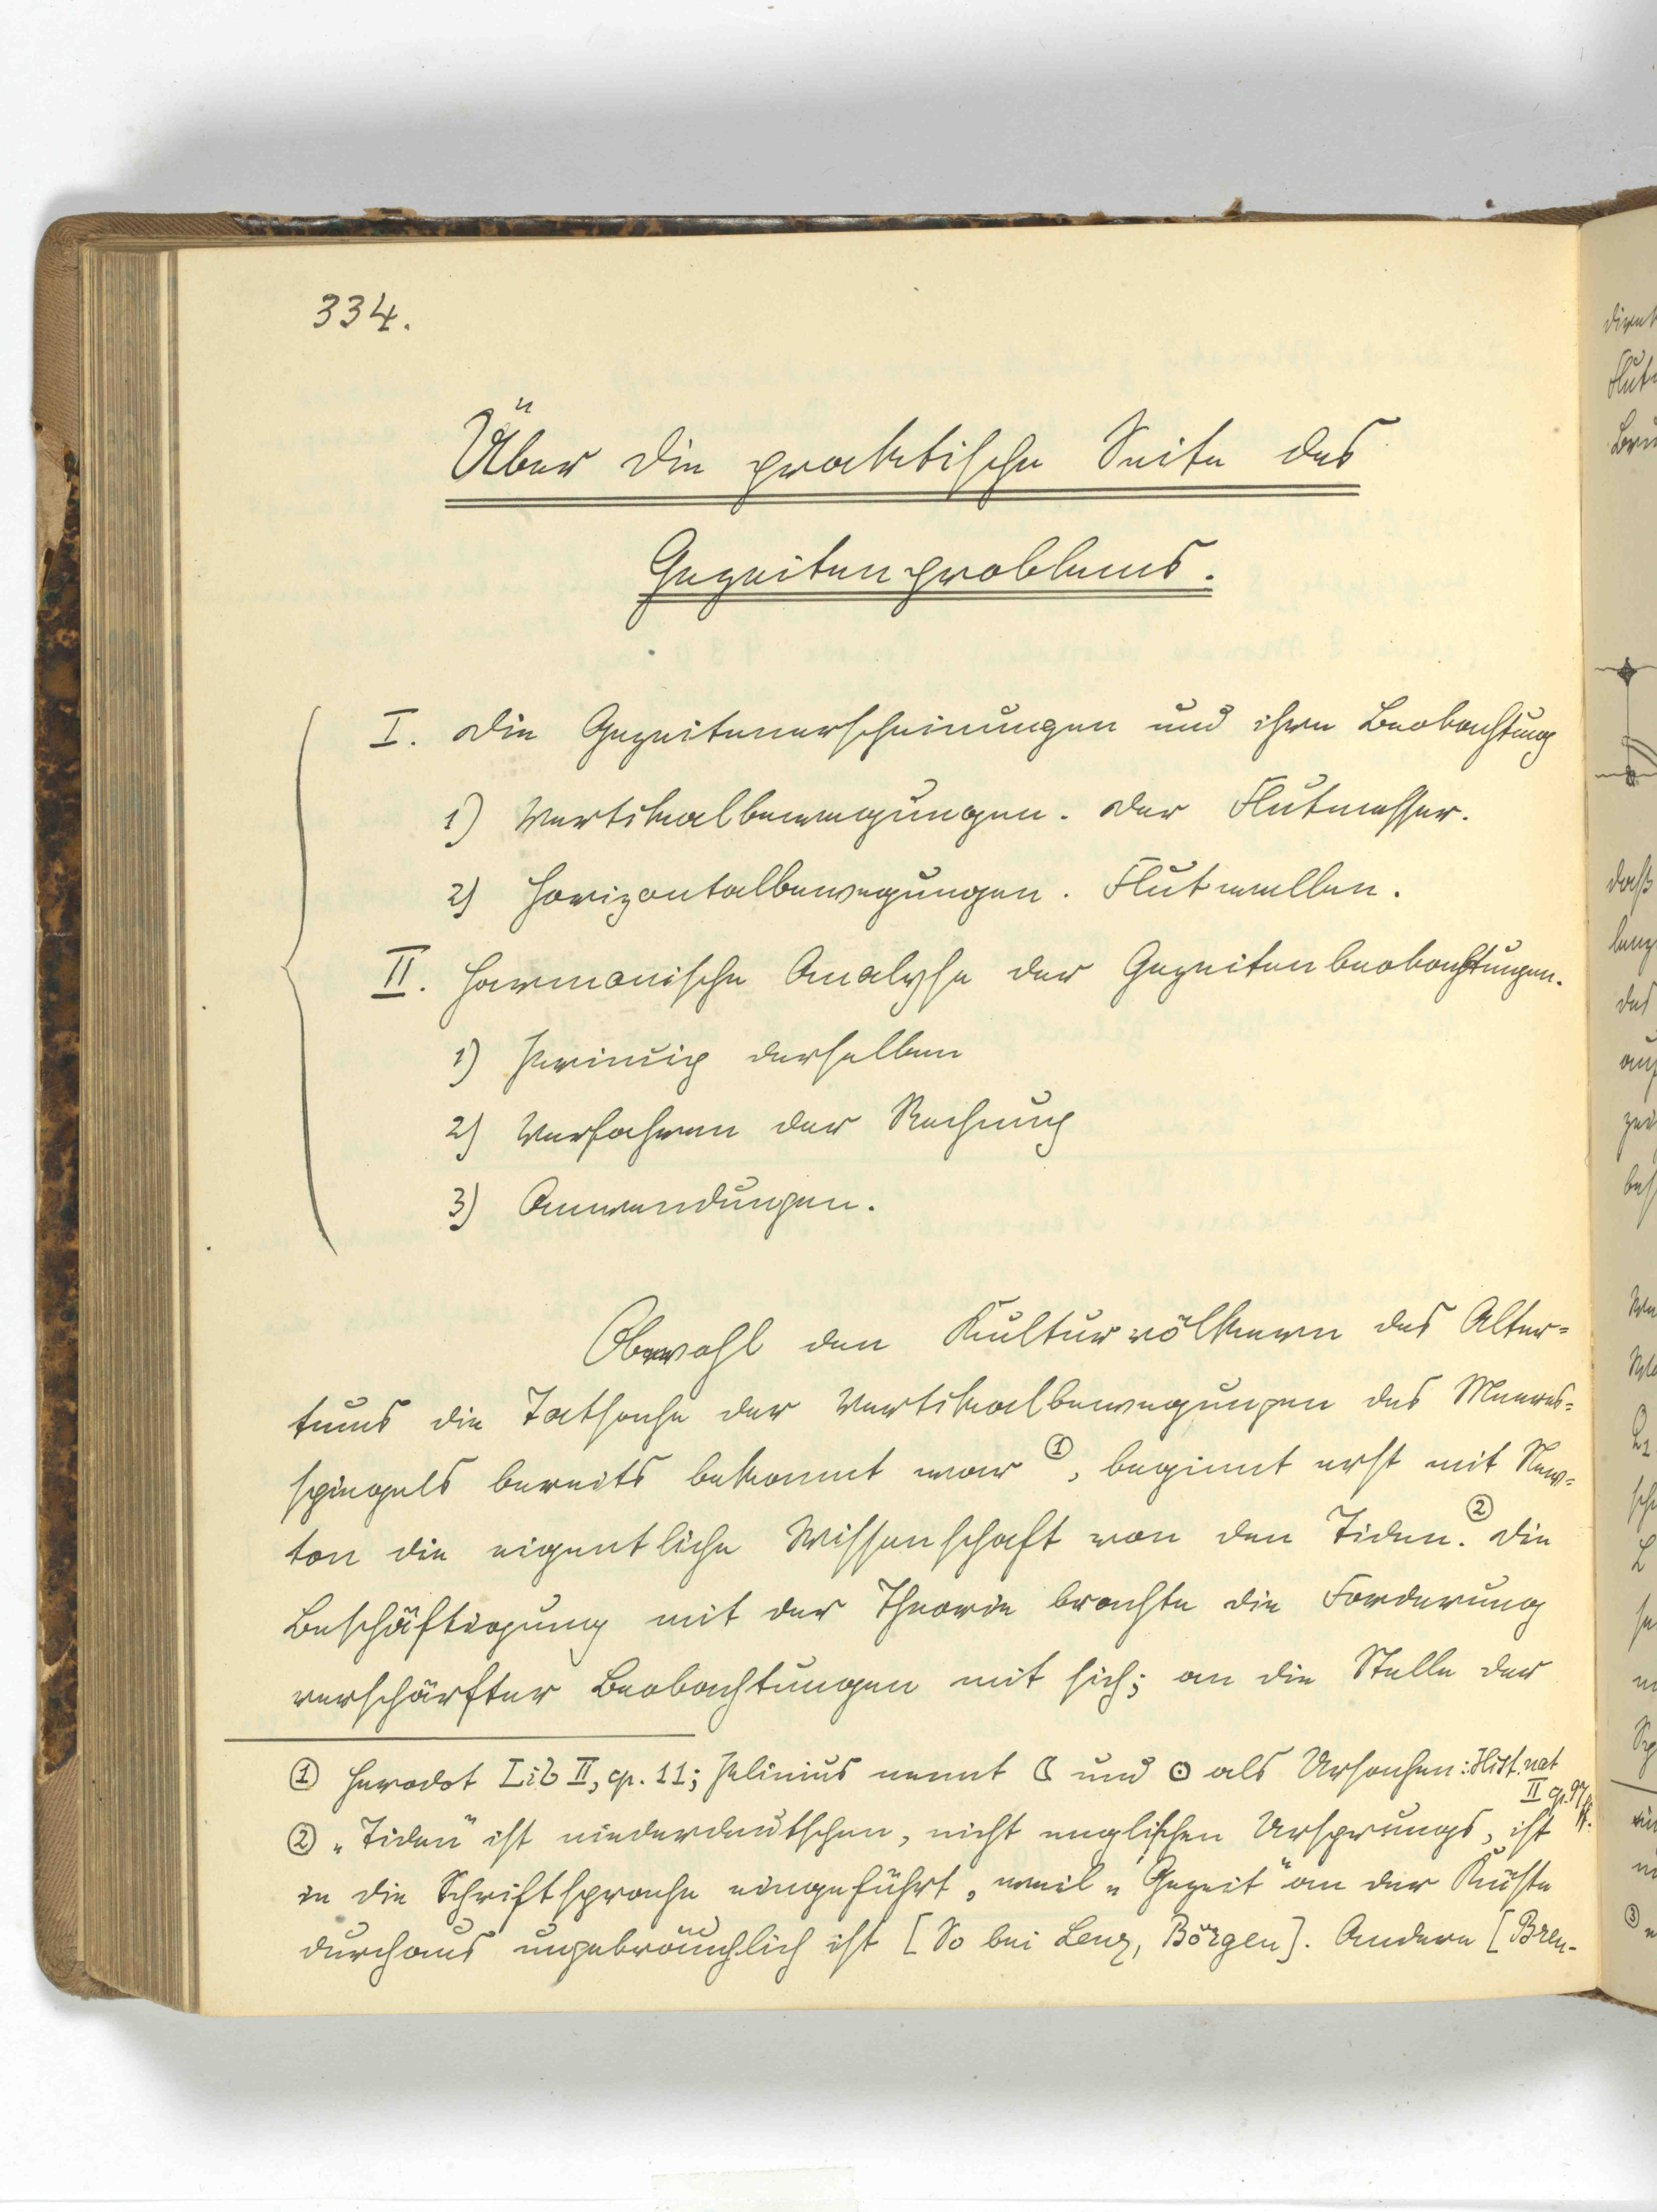 334.
Über die praktische Seite des
Gezeitenproblems.
I. Die Gezeitenerscheinungen und ihre Beobachtung
1) Vertikalbewegungen. Der Flutmesser.
2) Horizontalbewegungen. Flutwellen.
II. Harmonische Analyse der Gezeitenbeobachtungen.
1) Prinzip derselben
2) Verfahren der Rechnung
3) Anwendungen.
Obwohl den Kulturvölkern des Alter=
tums die Tatsache der Vertikalbewegungen des Meeres=
spiegels bereits bekannt war ①, beginnt erst mit New=
ton die eigentliche Wissenschaft von den Tiden. ② Die
Beschäftigung mit der Theorie brachte die Forderung
verschärfter Beobachtungen mit sich; an die Stelle der
① Herodot Lib II, cp. 11; Plinius nennt ☾ und ⊙ als Ursachen: Hist. nat
II cp. 97
② „Tiden" ist niederdeutschen, nicht englischen Ursprungs, ist
in die Schriftsprache eingeführt, weil „Gezeit" an der Küste
durchaus ungebräuchlich ist [So bei Lenz, Börgen]. Andere [Bren-